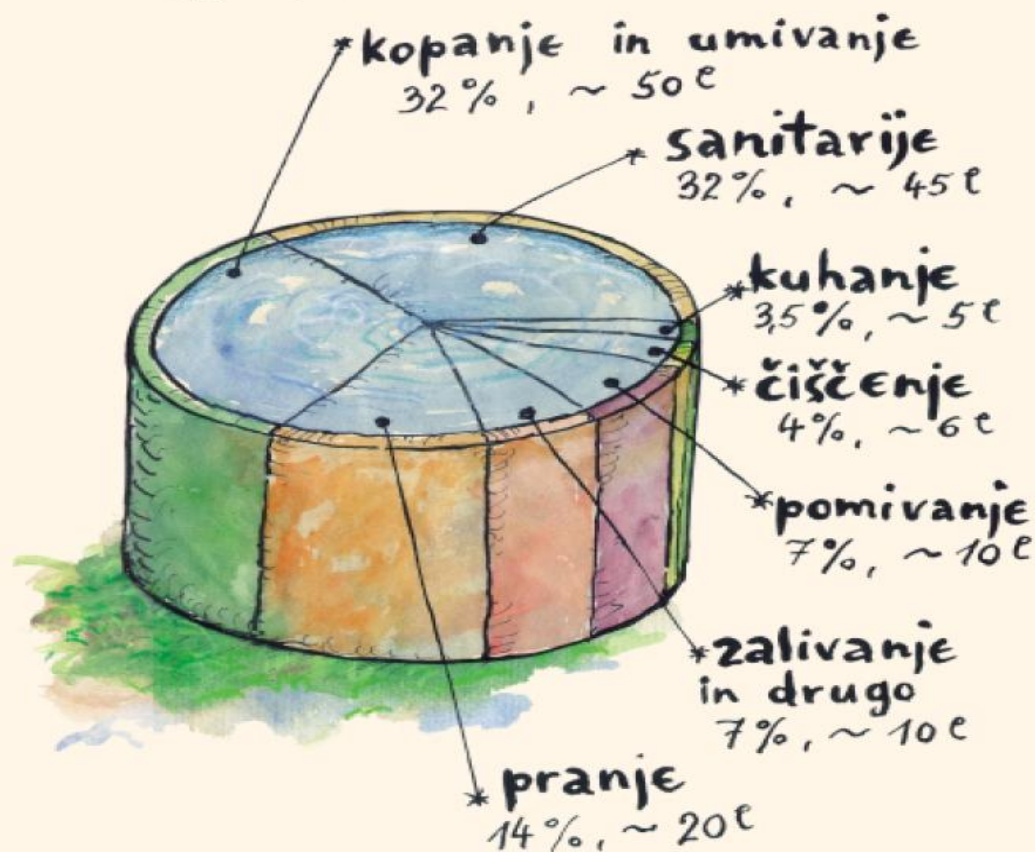 kopanje in umivanje
32%, ~ 50 l
sanitarije
32%, ~ 45 l
kuhanje
3,5%, ~ 5 l
čiščenje
4%, ~ 6 l
pomivanje
7%, ~ 10 l
zalivanje
in drugo
7%, ~ 10 l
pranje
14%, ~ 20 l